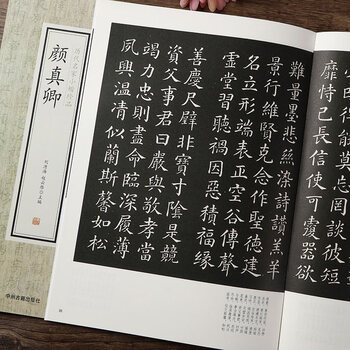 靡恃己長信使可覆器欲
難量墨悲絲染詩讚羔羊
景行維賢克念作聖德建
名立形端表正空谷傳聲
虛堂習聽禍因惡積福緣
善慶尺璧非寶寸陰是競
資父事君曰嚴與敬孝當
竭力忠則盡命臨深履薄
夙興溫凊似蘭斯馨如松
颜真卿
中州古籍出版社